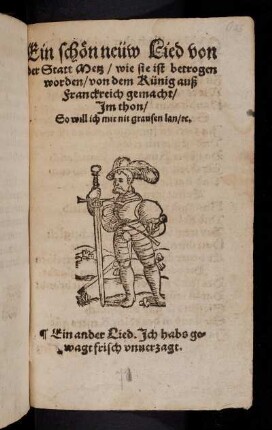 Ein schön neüw Lied von
der Statt Metz / wie sie ist betrogen
worden / von dem Künig auß
Franckreich gemacht /
Im thon /
So will ich mir nit grausen lan / ꝛc.
¶ Ein ander Lied. Ich habs ge-
wagt frisch vnuerzagt.